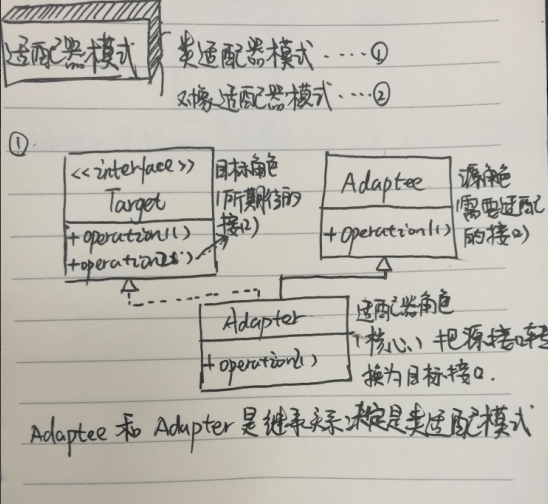 适配器模式
类适配器模式·····①
对像适配器模式····②
①
<<interface>>
Target
+operation1()
+operation2()
目标角色
(所期待的
接口)
Adaptee
+operation1()
源角色
(需要适配
的接口)
Adapter
+operation2()
适配器角色
(核心) 把源接口转
换为目标接口.
Adaptee 和 Adapter 是继承关系决定是类适配模式